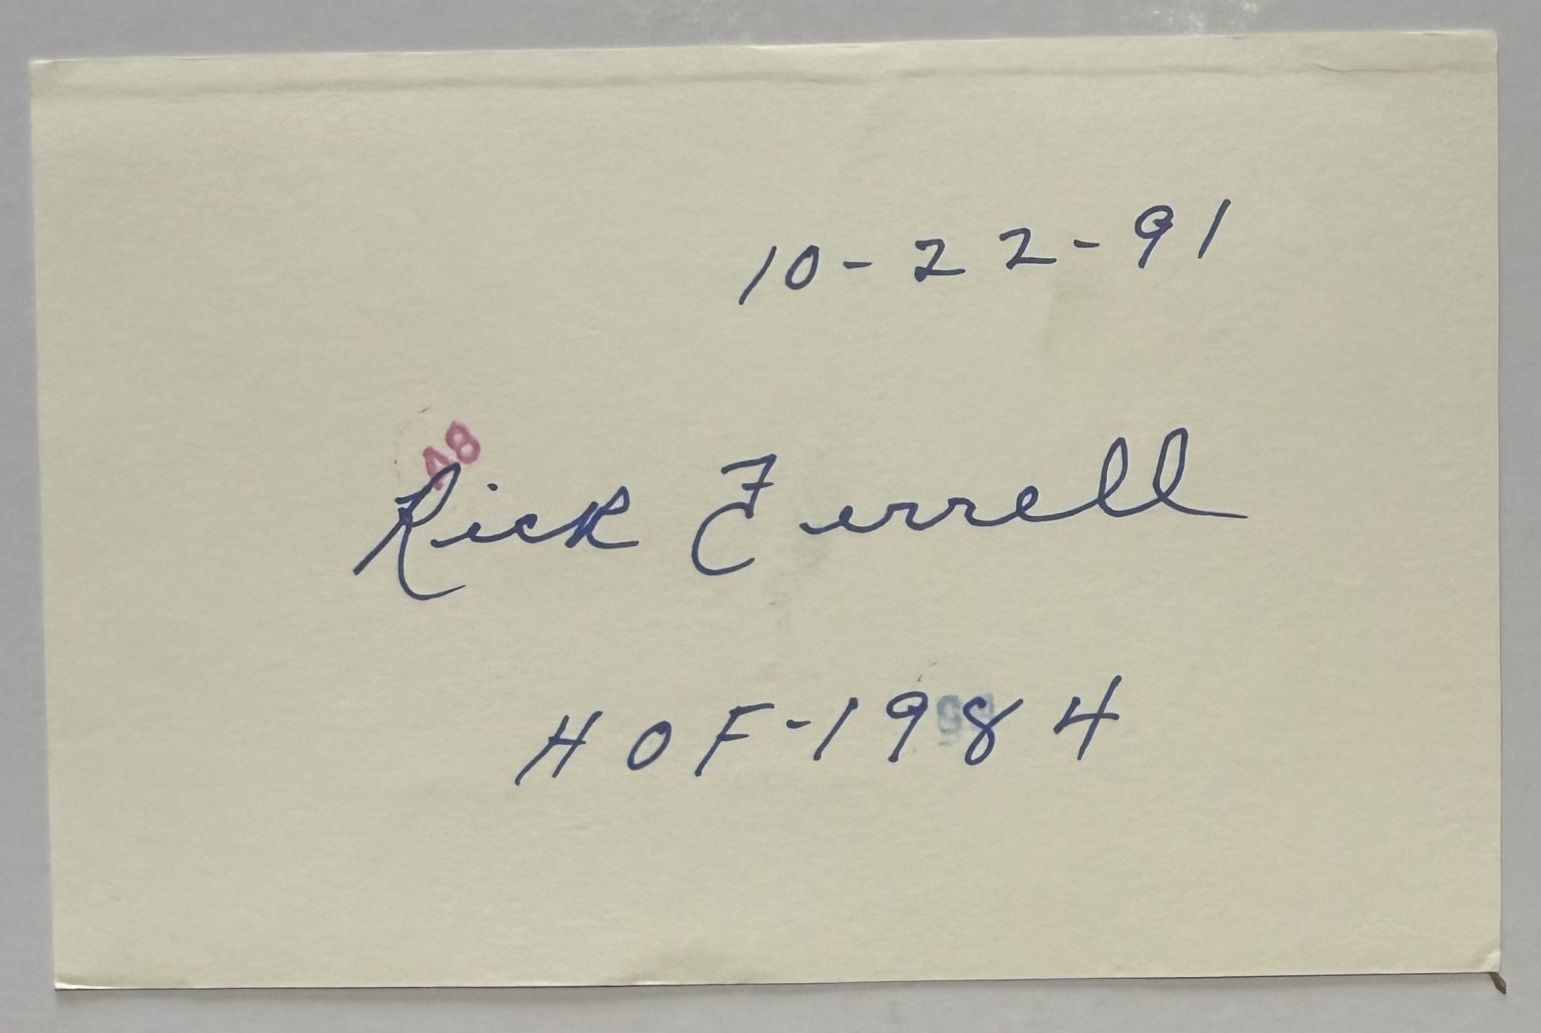 10-22-91
Rick Ferrell
HOF-1984